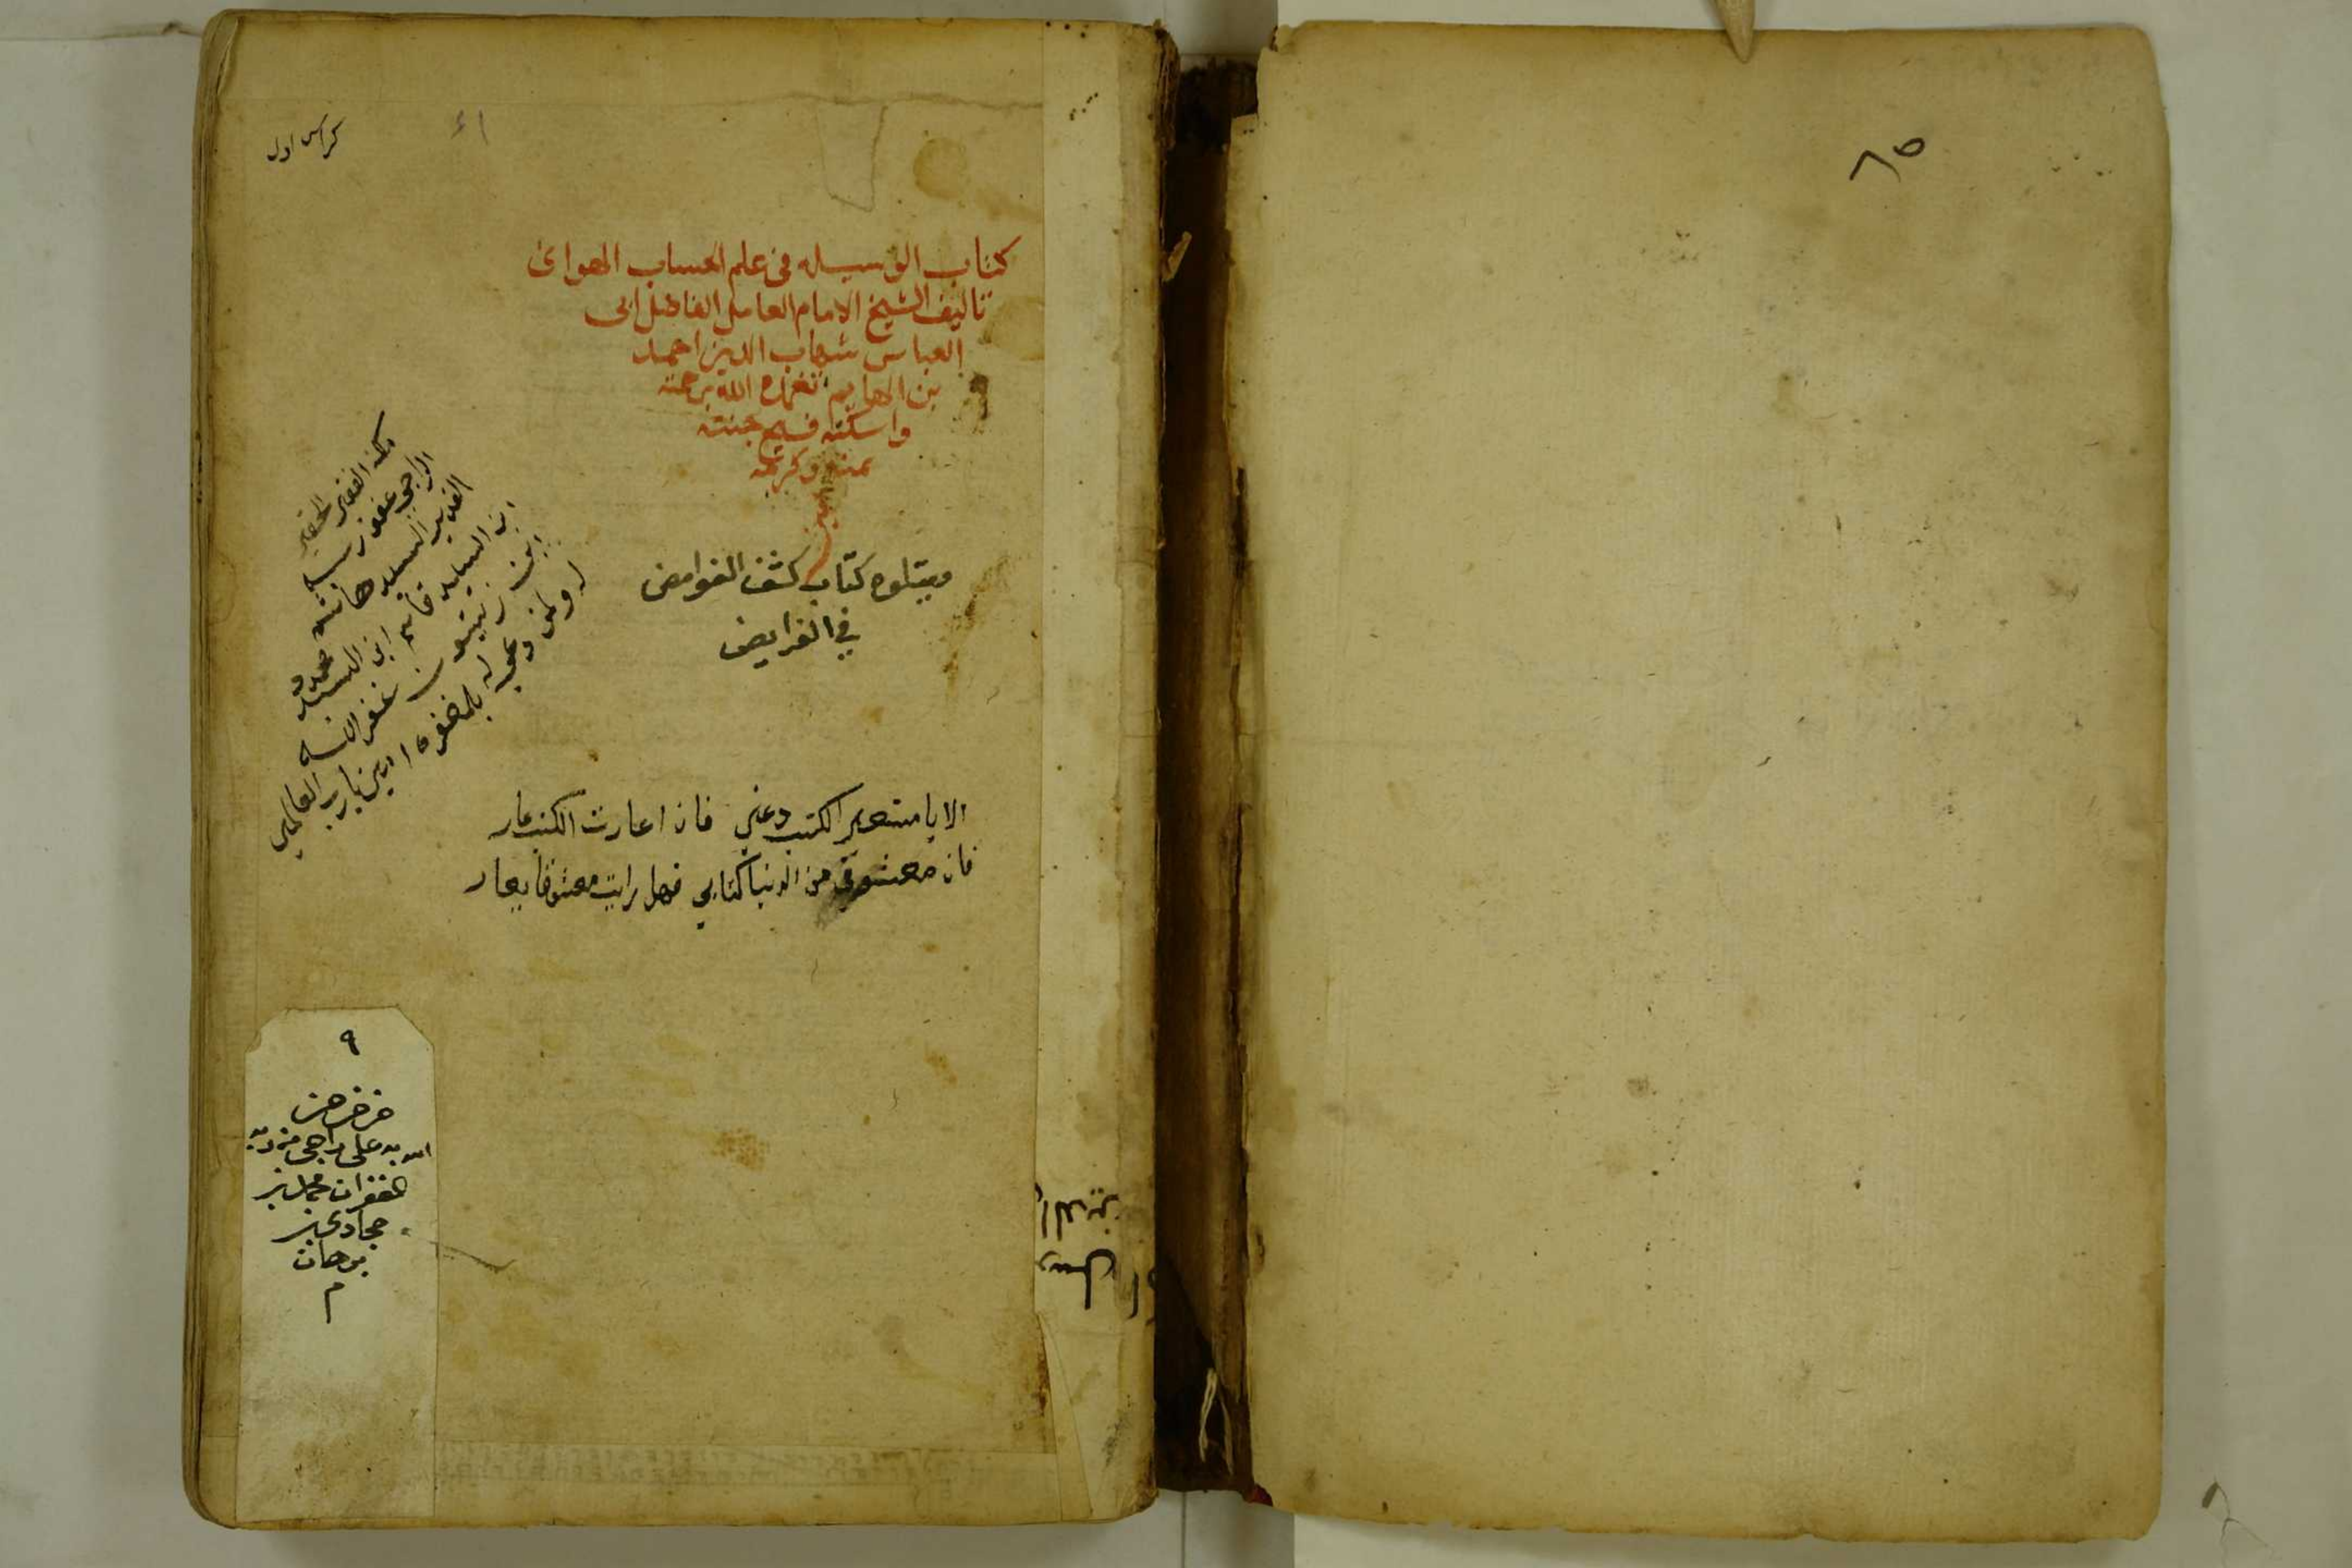 ٨٥
كراس اول
كتاب الوسيله فى علم الحساب الهوائى
تاليف الشيخ الامام العامل الفاضل ابى
العباس شهاب الدين احمد
بن الهايم تغمده الله برحمته
واسكنه فسيح جنته
بمنه وكرمه
امين
ويتلوه كتاب كشف الغوامض
في الفرايض
ملكه الفقير الحقير
الراجي عفو ربه
القدير السيد هاشم
ابن السيد قاسم ابن السيد محمد
ابن زيتون غفر الله
له ولمن دعى له بالمغفره امين يارب العالمين
الا يا مستعير الكتب دعني فان اعارت الكتب عار
فان معشوقي من الدنيا كتابي فهل رايت معشوقا يعار
٩
على راجى من ربه
الغفران محمد بن
حجازى بن
برهان
م